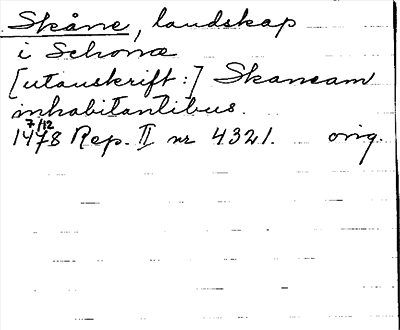 Skåne, landskap
i Schonæ
[utanskrift:] Skaneam
inhabitantibus.
7/12
1478 Rep. II nr 4321. orig.